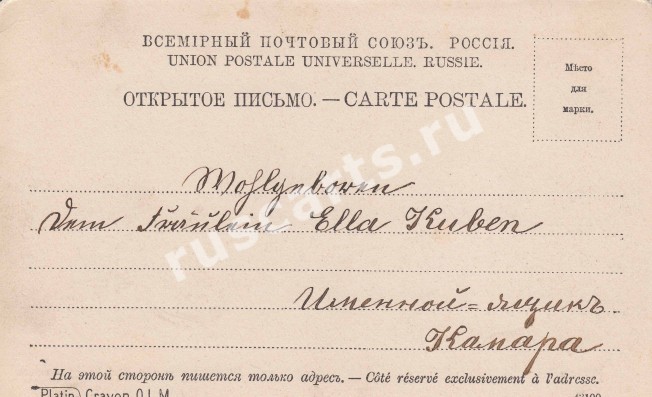 ВСЕМІРНЫЙ ПОЧТОВЫЙ СОЮЗЪ. РОССІЯ.
UNION POSTALE UNIVERSELLE. RUSSIE.
ОТКРЫТОЕ ПИСЬМО. — CARTE POSTALE.
Мѣсто
для
марки.
Wohlgeboren
Dem Fräulein Ella Kuben
Именной = ящикъ
На этой сторонѣ пишется только адресъ. — Côté réservé exclusivement à l'adresse.
Platin Crayon O.L.M.
ruscarts.ru